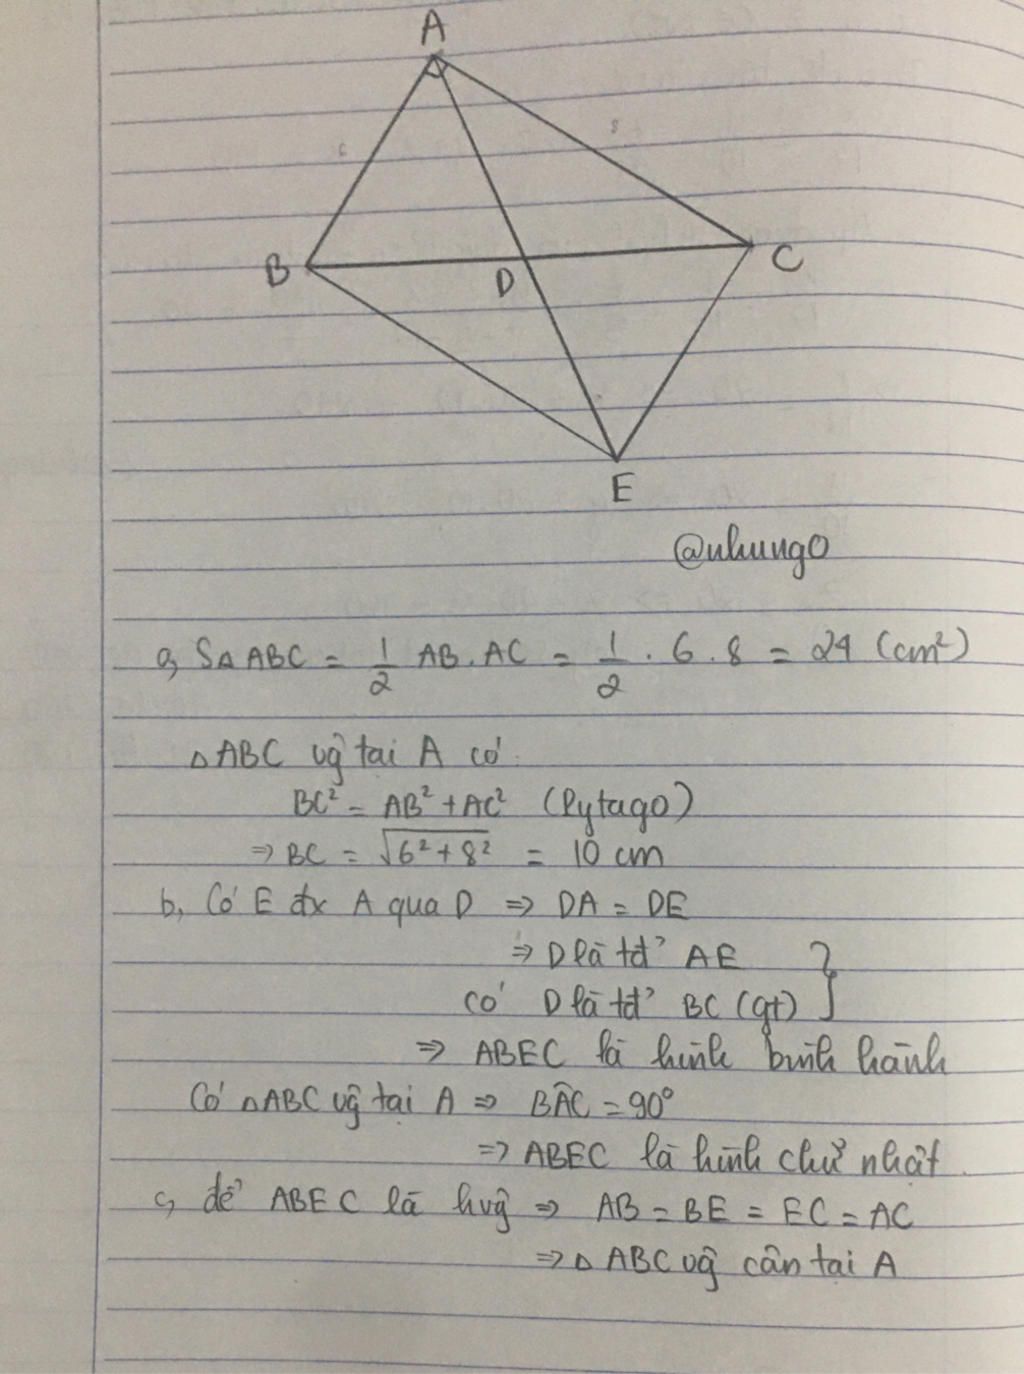 A
6
8
B
D
C
E
@nhungo
a, S△ABC = 1/2 AB.AC = 1/2 . 6 . 8 = 24 (cm²)
△ABC vg̃ tại A có
BC² = AB² + AC² (Pytago)
⇒ BC = √(6² + 8²) = 10 cm
b, Có E đx A qua D ⇒ DA = DE
⇒ D là tđ' AE }
có D là tđ' BC (gt) }
⇒ ABEC là hình bình hành
Có △ABC vg̃ tại A ⇒ BÂC = 90°
⇒ ABEC là hình chữ nhật.
c, để ABEC là hvg̃ ⇒ AB = BE = EC = AC
⇒ △ ABC vg̃ cân tại A